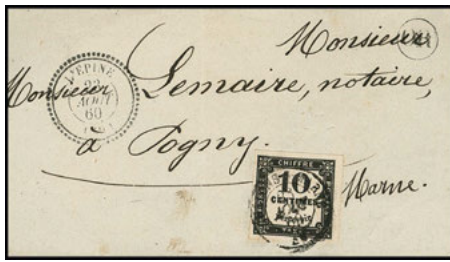 Monsieur
Monsieur Lemaire, notaire,
à Pogny.
Marne.
L'EPINE
22
AOUT
60
CHIFFRE
10
CENTIMES
à percevoir